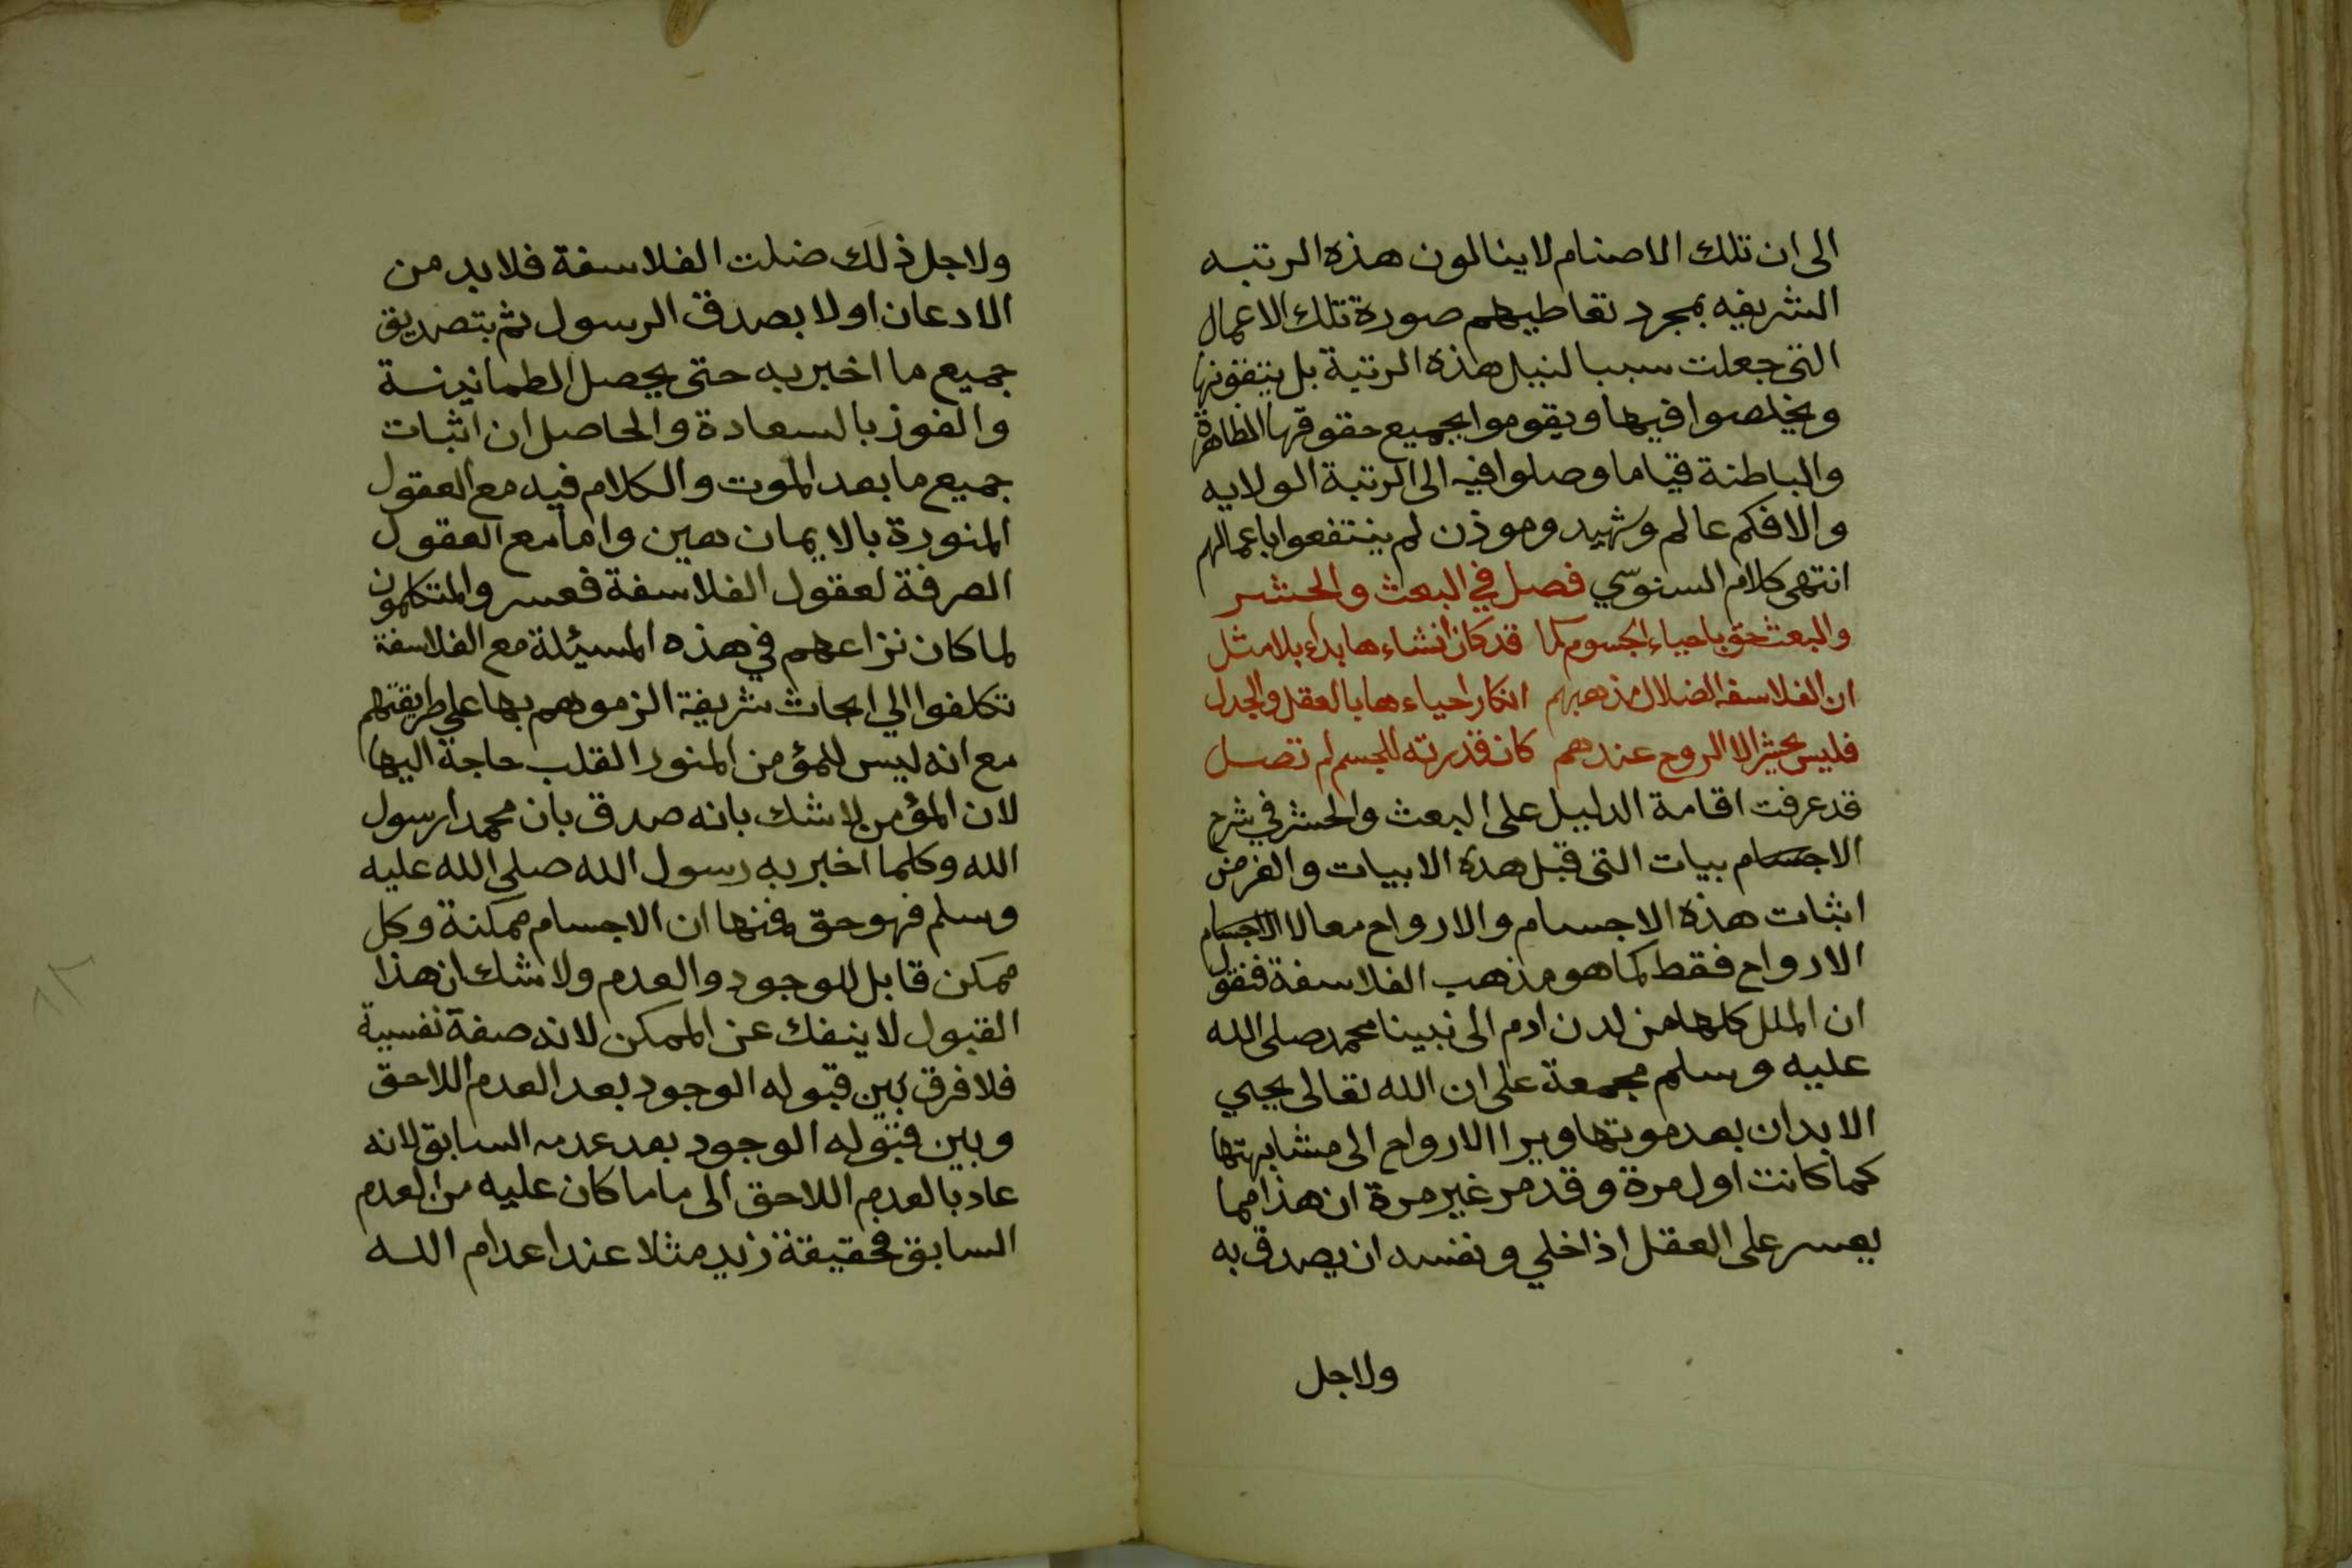 الى ان تلك الاصنام لاينالون هذه الرتبه
الشريفه بمجرد تعاطيهم صورة تلك الاعمال
التى جعلت سببا لنيل هذه الرتبة بل يتقونها
ويخلصوا فيها ويقوموا بجميع حقوقها الظاهرة
والباطنة قياما وصلوا فيه الى الرتبة الولايه
والا فكم عالم وشهيد وموذن لم ينتفعوا باعمالهم
انتهى كلام السنوسي فصل في البعث والحشر
والبعث حق باحياء الجسوم كما قد كان انشاءها بداء بلا مثل
ان الفلاسفه الضلال مذهبهم انكار احياءها بالعقل والجدل
فليس يحشر الا الروح عندهم كان قدرته للجسم لم تصل
قد عرفت اقامة الدليل على البعث والحشر في شرح
الاجسام بيات التى قبل هذه الابيات والغرض
اثبات هذه الاجسام والارواح معا لا الاجسام
الارواح فقط كما هو مذهب الفلاسفة فنقول
ان الملل كلها من لدن ادم الى نبينا محمد صلى الله
عليه وسلم مجمعة على ان الله تعالى يحيي
الابدان بعد موتها ويرا الارواح الى مشابهتها
كما كانت اول مرة وقد مر غير مرة ان هذا مما
يعسر على العقل اذا خلي ونفسه ان يصدق به
ولاجل
ولاجل ذلك ضلت الفلاسفة فلا بد من
الادعان اولا بصدق الرسول ثم بتصديق
جميع ما اخبر به حتى يحصل الطمانينة
والفوز بالسعادة والحاصل ان اثبات
جميع ما بعد الموت والكلام فيه مع العقول
المنورة بالايمان هين واما مع العقول
الصرفة لعقول الفلاسفة فعسر والمتكلمون
لما كان نزاعهم في هذه المسيئلة مع الفلاسفة
تكلفوا الي ابحاث شريفة الزموهم بها علي طريقتهم
مع انه ليس للمؤمن المنور القلب حاجة اليها
لان المؤمن لا شك بانه صدق بان محمدا رسول
الله وكلما اخبر به رسول الله صلي الله عليه
وسلم فهو حق فمنها ان الاجسام ممكنة وكل
ممكن قابل للوجود والعدم ولا شك ان هذا
القبول لا ينفك عن الممكن لانه صفة نفسية
فلا فرق بين قبوله الوجود بعد العدم اللاحق
وبين قبوله الوجود بعد عدمه السابق لانه
عاد بالعدم اللاحق الى ما ما كان عليه من العدم
السابق فحقيقة زيد مثلا عند اعدام الله